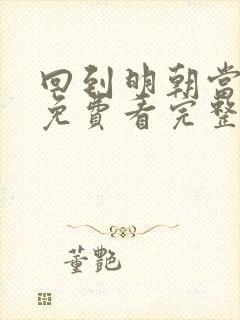 回到明朝当
免费看完整
董艳